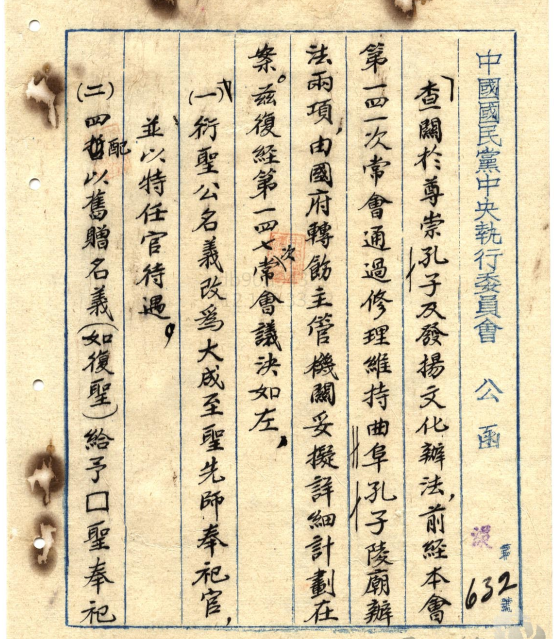 中國國民黨中央執行委員會 公函
第632號
查關於尊崇孔子及發揚文化辦法，前經本會
第一四一次常會通過修理維持曲阜孔子陵廟辦
法兩項，由國府轉飭主管機關妥擬詳細計劃在
案。茲復經第一四七次常會議決如左，
(一)衍聖公名義改為大成至聖先師奉祀官，
並以特任官待遇。
(二)四配以舊贈名義(如復聖)給予□聖奉祀